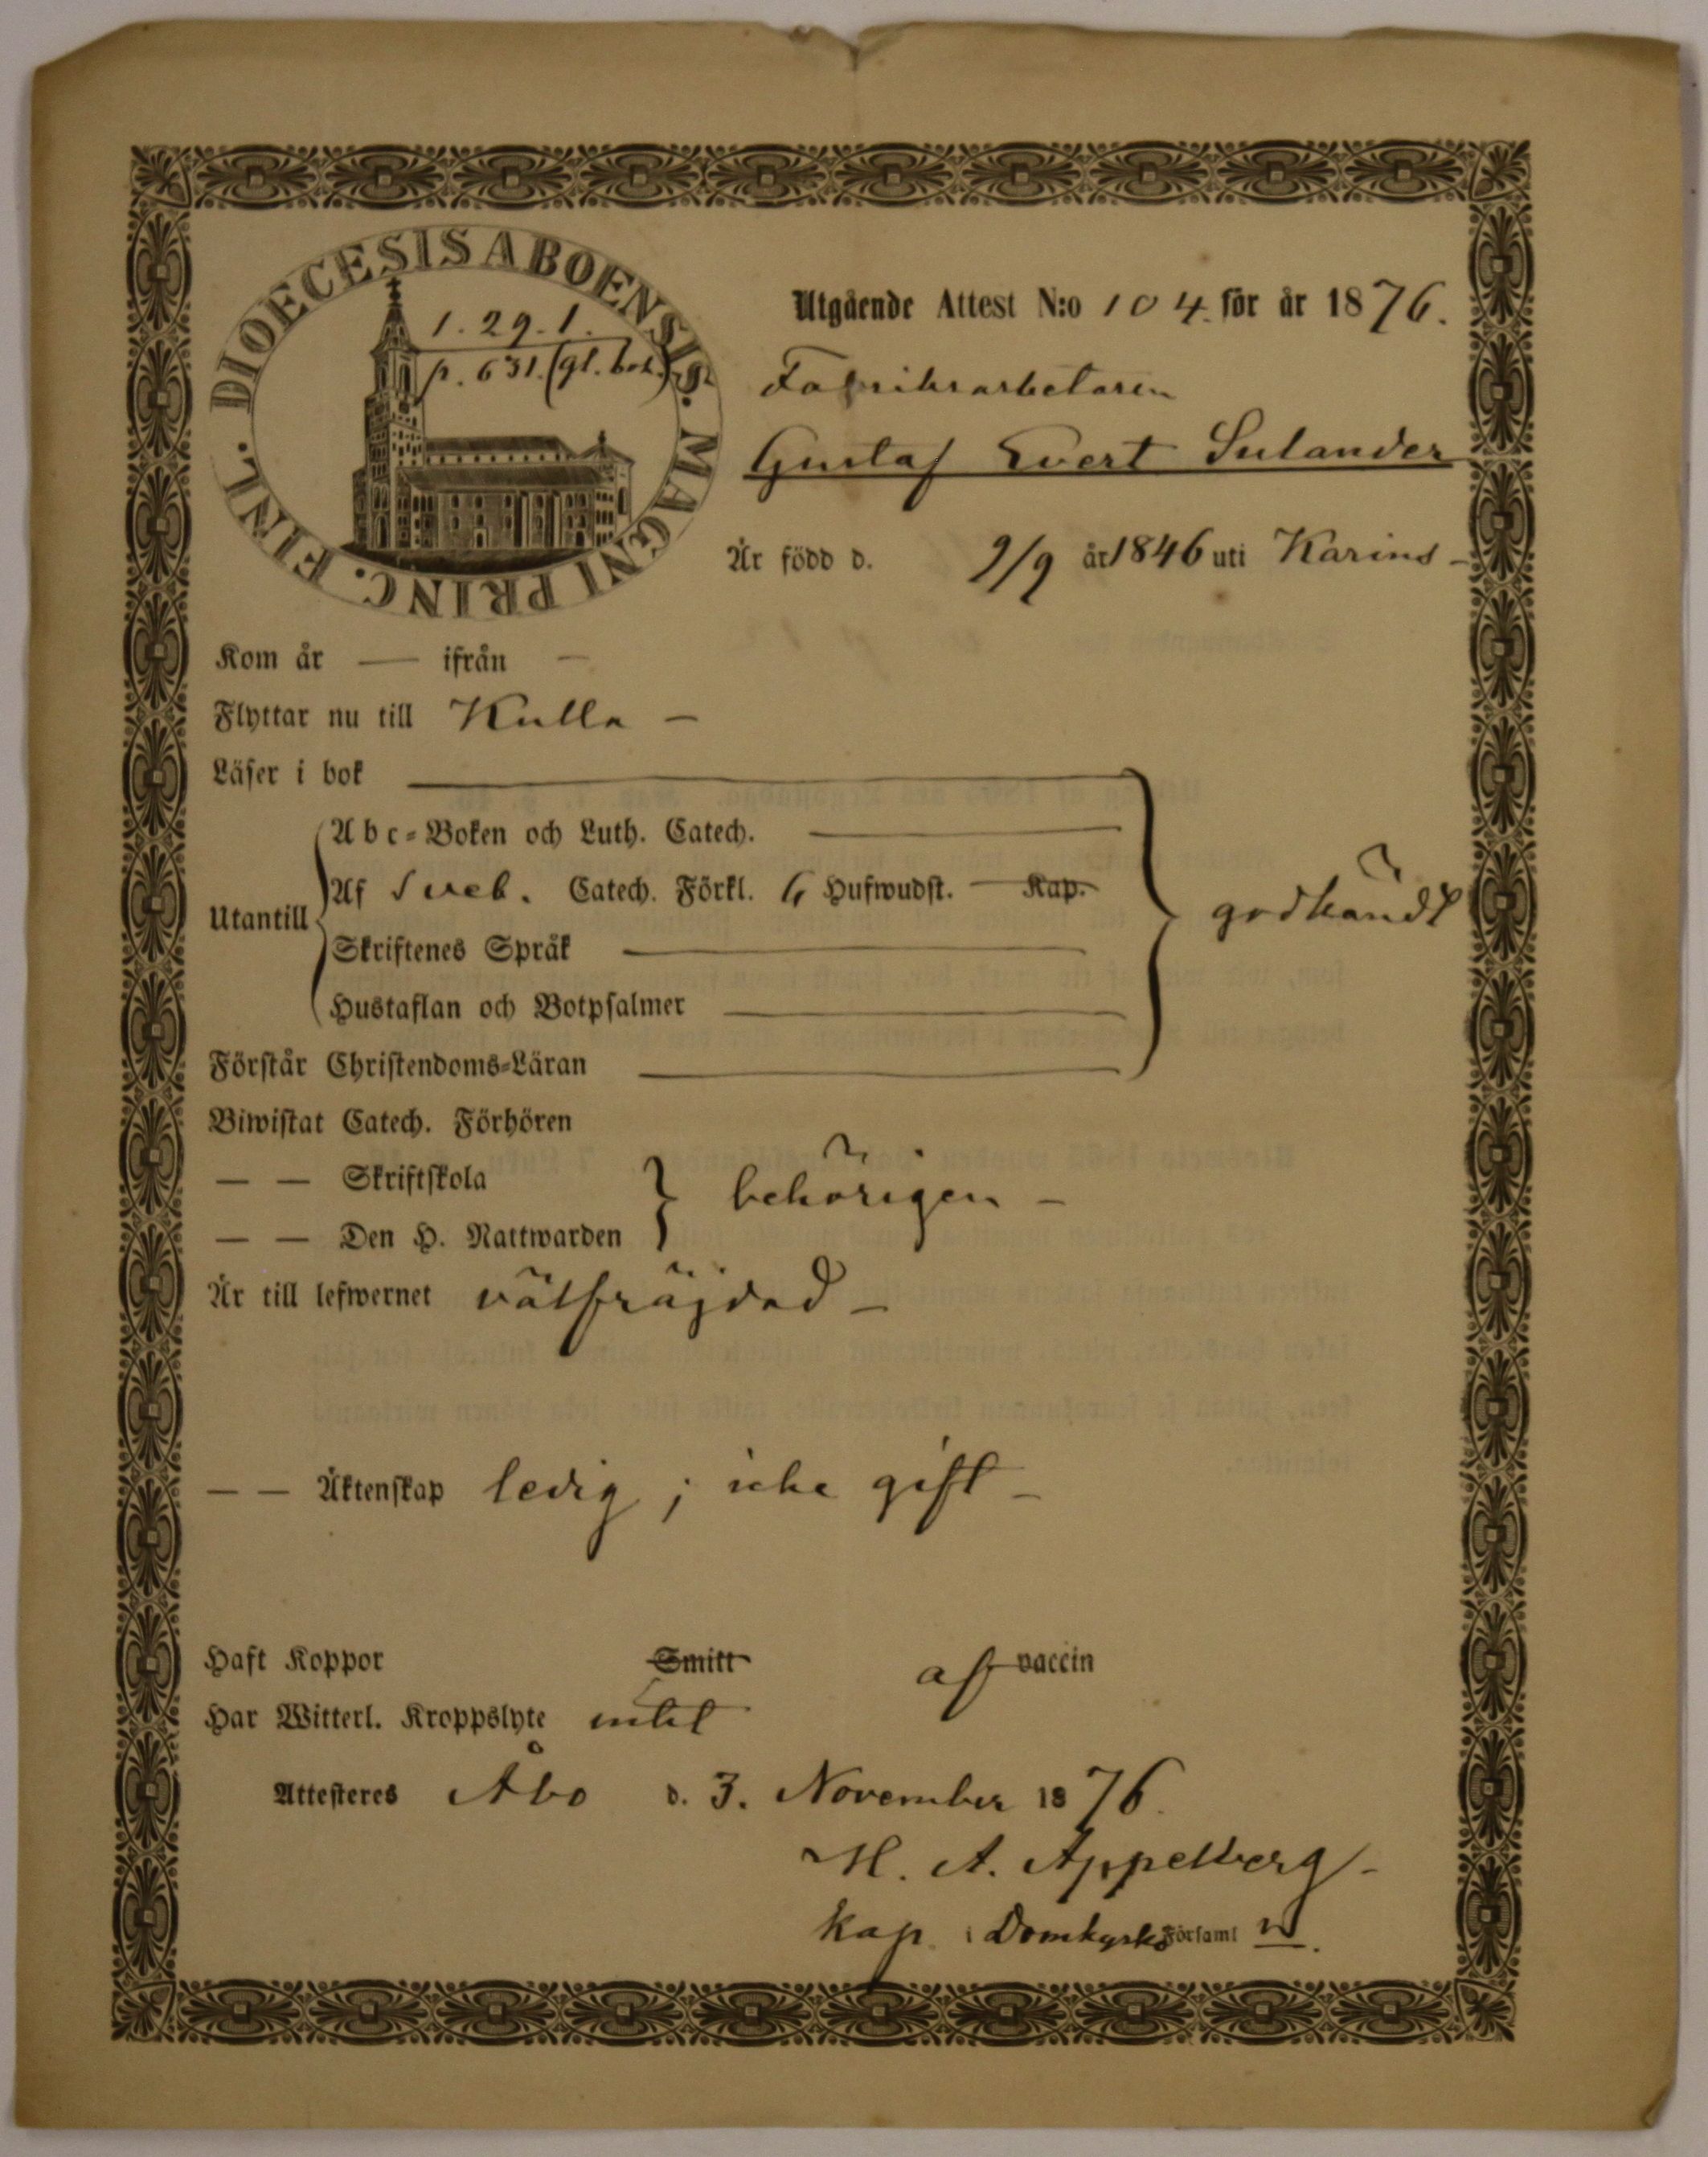 DIOECESIS ABOENSIS. MAGNI PRINC. FINL.
1. 29. 1.
p. 631. (gl. bok.)
Utgående Attest N:o 104. för år 1876.
Fabriksarbetaren
Gustaf Evert Sulander
Är född d. 9/9 år 1846 uti Karins -
Kom år — ifrån —
Flyttar nu till Kulla -
Läser i bok
Abc-Boken och Luth. Catech.
Utantill
Af Sveb. Catech. Förkl. 6 Hufwudst. — Kap.
godkändt
Skriftenes Språk
Hustaflan och Botpsalmer
Förstår Christendoms-Läran
Biwistat Catech. Förhören
— — Skriftskola
behörigen -
— — Den H. Nattwarden
Är till lefwernet välfräjdad -
— — Äktenskap ledig ; icke gift -
Haft Koppor Smitt af vaccin
Har Witterl. Kroppslyte intet
Attesteres Åbo d. 3. November 1876.
A. Appelberg -
Kap. i Domkyrko Församl